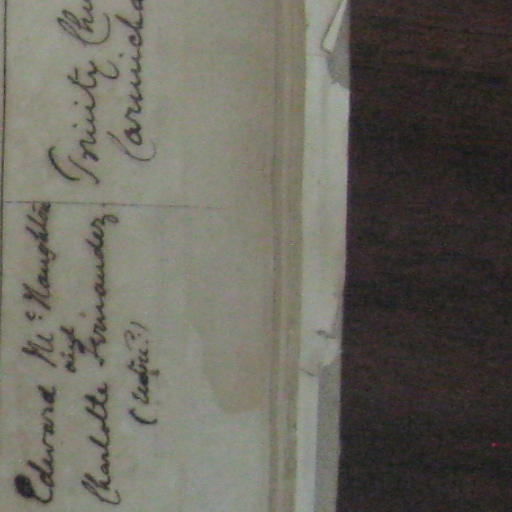 Edward McNaughton
and
Charlotte Fernandez
Trinity Chu
Carmicha